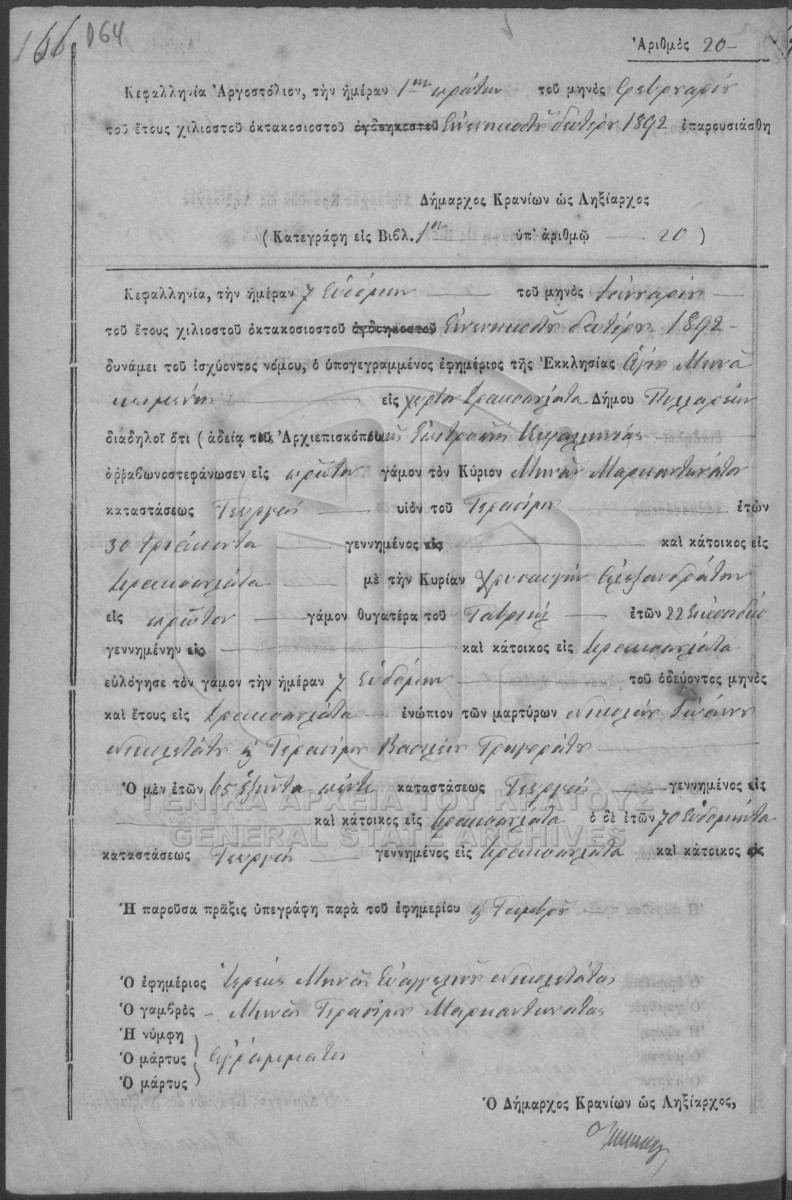 166 D64
Ἀριθμὸς 20
Κεφαλληνία Ἀργοστόλιον, τὴν ἡμέραν 1ην πρώτην τοῦ μηνὸς Φεβρουαρίου
τοῦ ἔτους χιλιοστοῦ ὀκτακοσιοστοῦ ὀγδοηκοστοῦ Ἐνενηκοστοῦ δευτέρου 1892 ἐπαρουσιάσθη
Δήμαρχος Κρανίων ὡς Ληξίαρχος
(Κατεγράφη εἰς Βιβλ. 1ον ὑπ' ἀριθμῷ 20)
Κεφαλληνία, τὴν ἡμέραν 7 Ἑβδόμην τοῦ μηνὸς Ἰανουαρίου
τοῦ ἔτους χιλιοστοῦ ὀκτακοσιοστοῦ ὀγδοηκοστοῦ Ἐνενηκοστοῦ δευτέρου 1892
δυνάμει τοῦ ἰσχύοντος νόμου, ὁ ὑπογεγραμμένος ἐφημέριος τῆς Ἐκκλησίας Ἁγίου Μηνᾶ
κειμένης εἰς χωρίον Δρακοπουλάτα Δήμου Πυλλαρέων
διαδηλοῖ ὅτι (ἀδείᾳ τῆς Ἀρχιεπισκοπικῆς Ἐπιτροπῆς Κεφαλληνίας
ἀῤῥαβωνοστεφάνωσεν εἰς πρῶτον γάμον τὸν Κύριον Μηνᾶν Μαρκαντωνάτον
καταστάσεως Γεωργοῦ υἱὸν τοῦ Γερασίμου ἐτῶν
30 τριάκοντα γεννημένος εἰς καὶ κάτοικος εἰς
Δρακοπουλάτα μὲ τὴν Κυρίαν Χρυσαυγὴν Ἀλεξανδράτου
εἰς πρῶτον γάμον θυγατέρα τοῦ Γαβριὴλ ἐτῶν 22 Εἰκοσιδύο
γεννημένην εἰς καὶ κάτοικος εἰς Δρακοπουλάτα
εὐλόγησε τὸν γάμον τὴν ἡμέραν 7 Ἑβδόμην τοῦ ὁδεύοντος μηνὸς
καὶ ἔτους εἰς Δρακοπουλάτα ἐνώπιον τῶν μαρτύρων Νικολάου Ἰωάννου
Νικολετάτου ϗ Γερασίμου Βασιλείου Γρηγοράτου
Ὁ μὲν ἐτῶν 65 ἑξήντα πέντε καταστάσεως Γεωργοῦ γεννημένος εἰς
καὶ κάτοικος εἰς Δρακοπουλάτα ὁ δὲ ἐτῶν 70 Ἑβδομήντα
καταστάσεως Γεωργοῦ γεννημένος εἰς Δρακοπουλάτα καὶ κάτοικος εἰς
ΓΕΝΙΚΑ ΑΡΧΕΙΑ ΤΟΥ ΚΡΑΤΟΥΣ
GENERAL STATE ARCHIVES
Ἡ παροῦσα πρᾶξις ὑπεγράφη παρὰ τοῦ ἐφημερίου ϗ Γαμβροῦ
Ὁ ἐφημέριος Ἱερεὺς Μηνᾶς Εὐαγγελινὸς Νικολετάτος
Ὁ γαμβρὸς Μηνᾶς Γερασίμου Μαρκαντωνάτος
Ἡ νύμφη
Ὁ μάρτυς Ἀγράμματοι
Ὁ μάρτυς
Ὁ Δήμαρχος Κρανίων ὡς Ληξίαρχος,